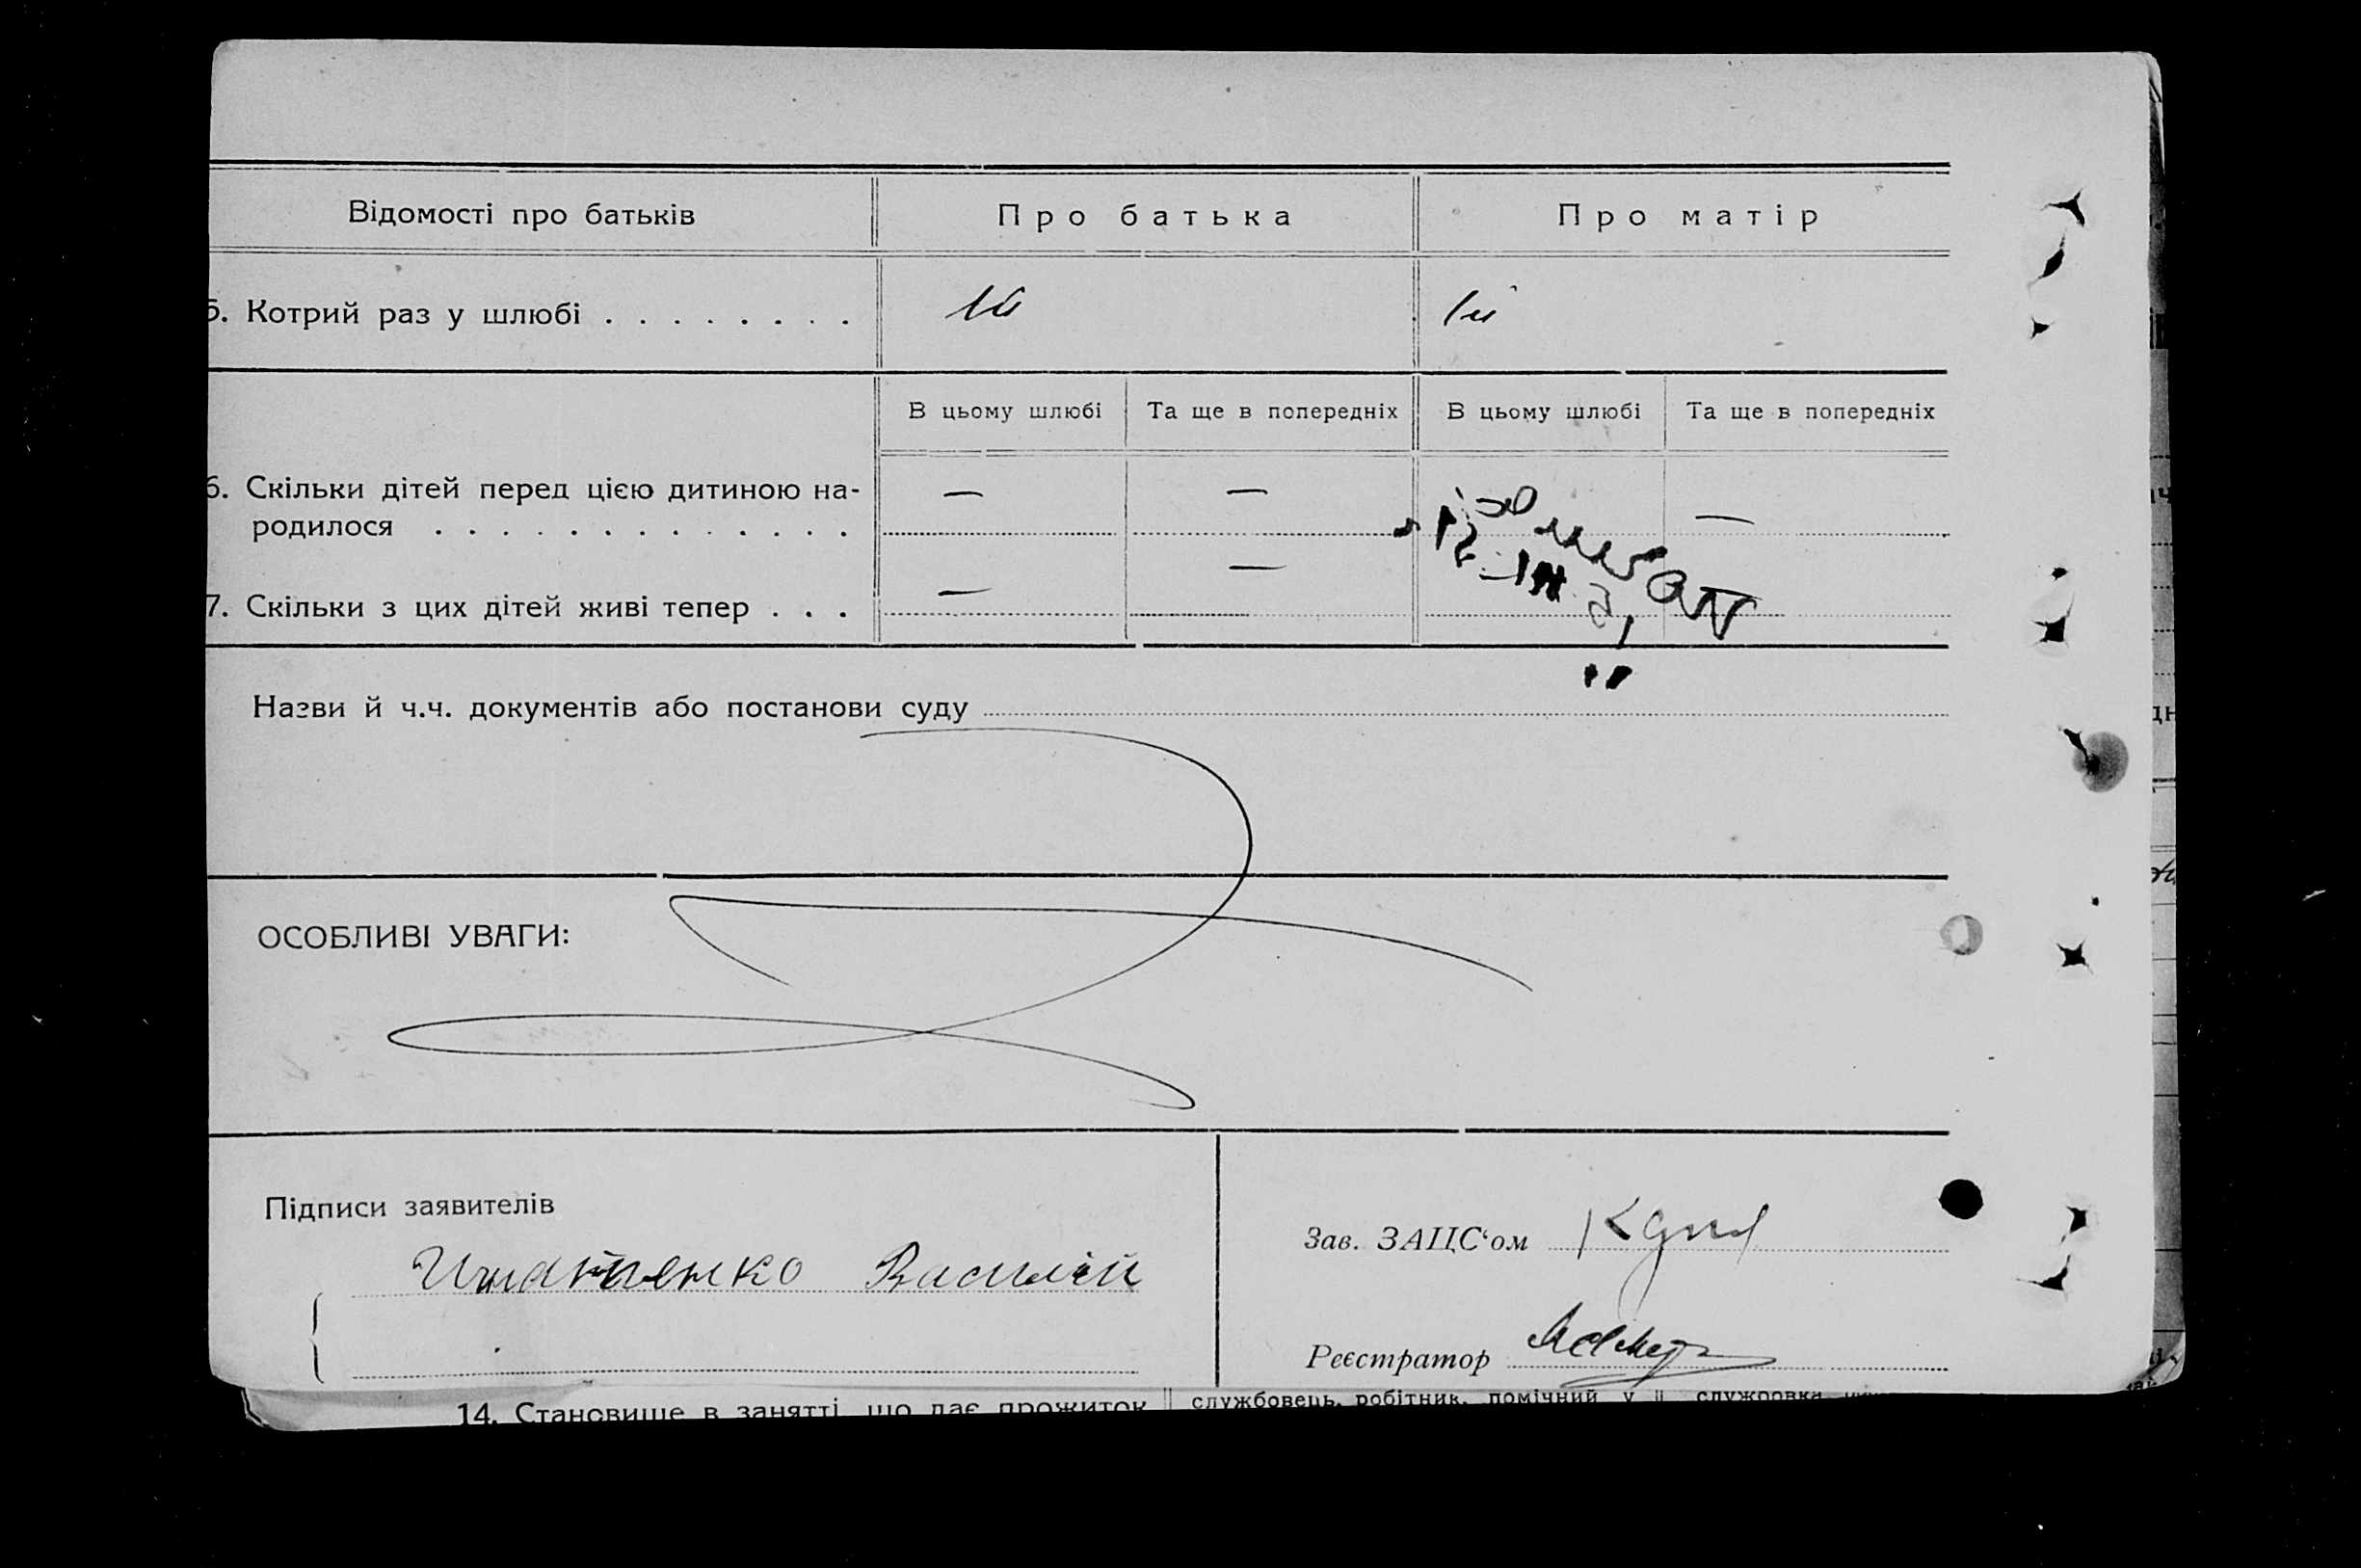 Відомості про батьків Про батька Про матір
5. Котрий раз у шлюбі . . . . . . . . 1й 1й
В цьому шлюбі Та ще в попередніх В цьому шлюбі Та ще в попередніх
6. Скільки дітей перед цією дитиною на- — — —
родилося . . . . . . . . . . . . .
7. Скільки з цих дітей живі тепер . . . — —
Назви й ч.ч. документів або постанови суду
ОСОБЛИВІ УВАГИ:
Підписи заявителів
Зав. ЗАЦС‘ом
Василій
Реєстратор
14. Становище в занятті, що дає прожиток службовець, робітник, помічний у